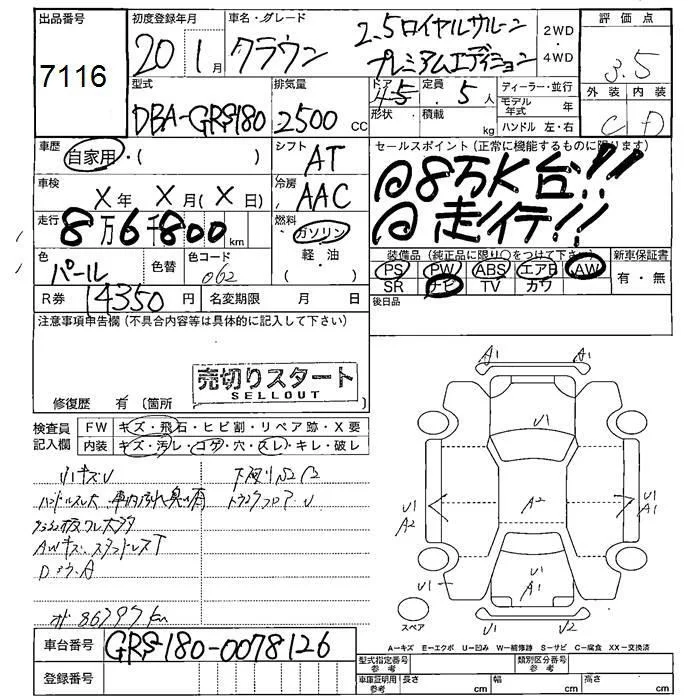 出品番号 初度登録年月 車名・グレード 評価点
7116
20 1月 クラウン 2.5ロイヤルサルーン プレミアムエディション 2WD ・ 4WD 3.5
型式 排気量 ドア 定員 ディーラー・並行 外装 内装
DBA-GRS180 2500cc 4 5 5人 モデル年式 年 C D
形状 積載 kg ハンドル 左・右
車歴 自家用・( ) シフト AT セールスポイント (正常に機能するものに限ります)
車検 X年 X月(X日) 冷房 AAC @8万K台!!
走行 8万6千800km 燃料 ガソリン @走行!!
軽・油
( )
色 パール 色替 色コード 062
装備品(純正品に限り○をつけて下さい) 新車保証書
PS PW ABS エアB AW 有・無
SR ナビ TV カワ
R券 14350円 名変期限 月 日 後日品
注意事項申告欄(不具合内容等は具体的に記入して下さい)
売切りスタート
SELLOUT
修復歴 有(箇所
検査員記入欄 FW キズ・飛石・ヒビ割・リペア跡・X要
内装 キズ・汚レ・コゲ・穴・スレ・キレ・破レ
小キズU
ハンドルスレ大
トランクフロアU
AWキズ スタッドレスT
86797km
A1 A1
U1
U1 A2 A2 U1 A1
U1 U1 A1
スペア U1 U2
A-キズ E-エクボ U-凹み W-補修跡 S-サビ C-腐食 XX-交換済
車台番号 GRS180-0078126
登録番号
型式指定番号 参考 類別区分番号 参考
車庫証明用 参考 長さ cm 幅 cm 高さ cm